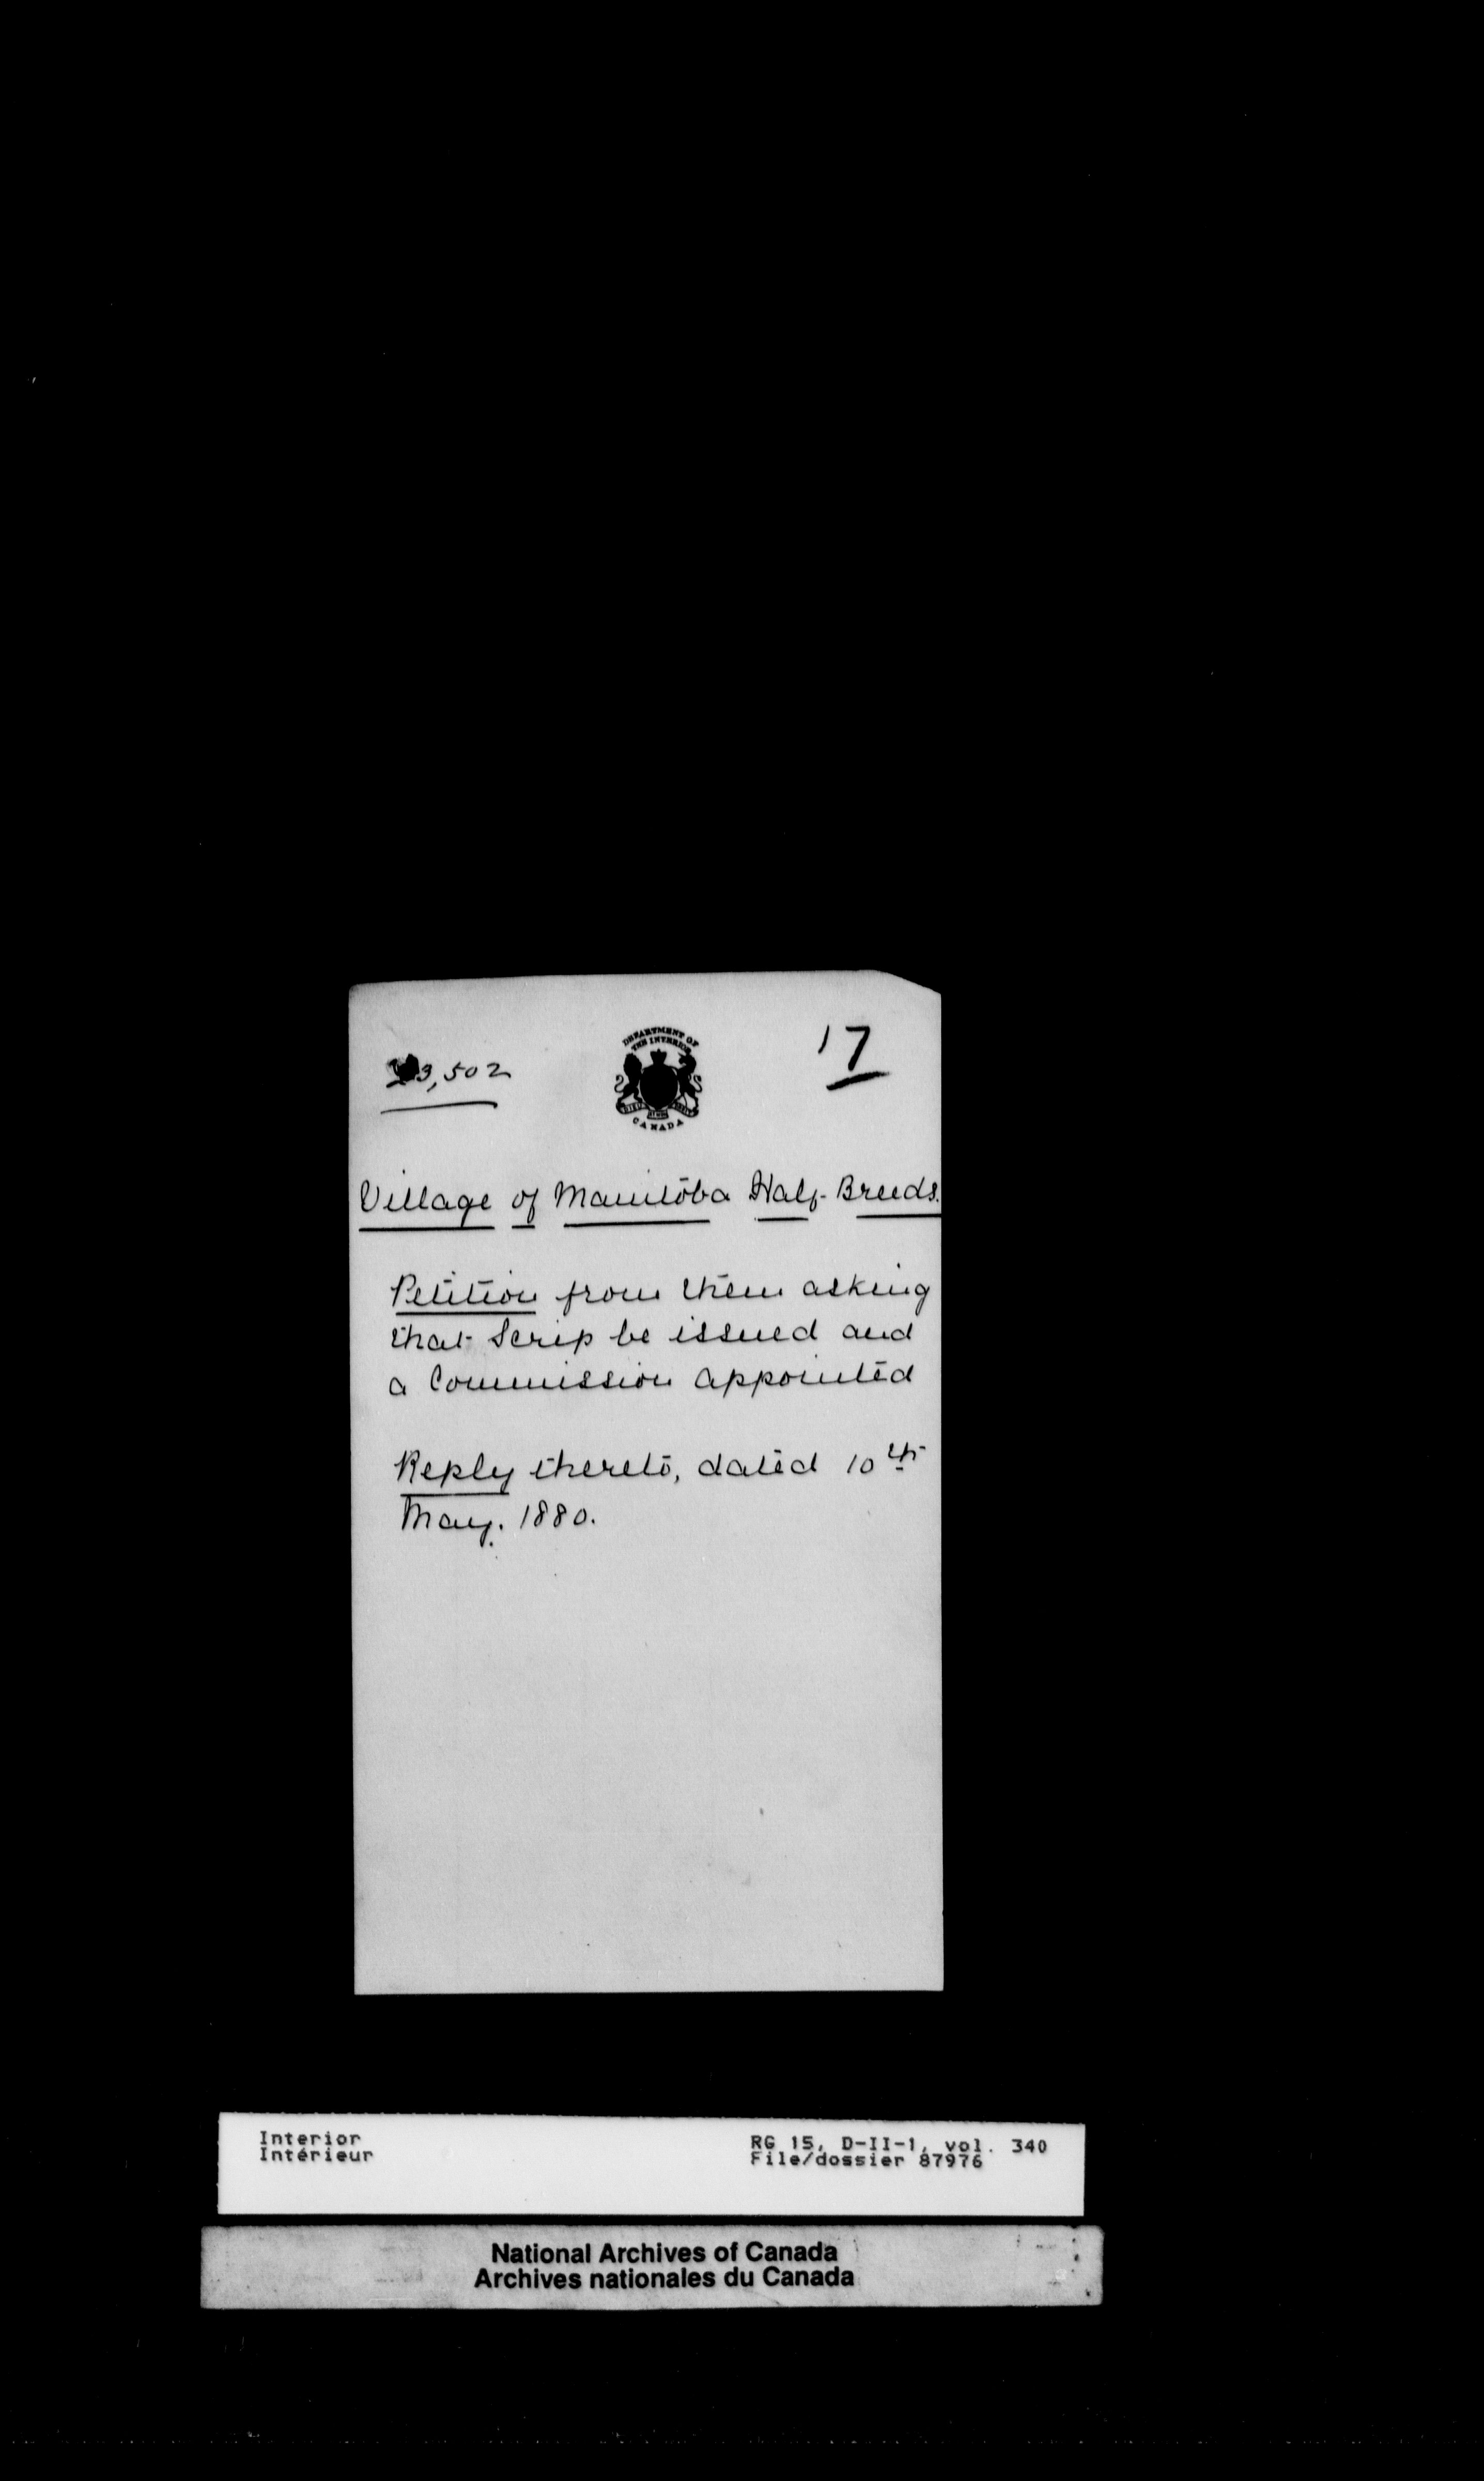 3,502
DEPARTMENT OF
THE INTERIOR
CANADA
17
Village of Manitoba Half-Breeds.
Petition from them asking
that Scrip be issued and
a Commission appointed
Reply thereto, dated 10th
May. 1880.
Interior
Intérieur
RG 15, D-II-1, vol. 340
File/dossier 87976
National Archives of Canada
Archives nationales du Canada